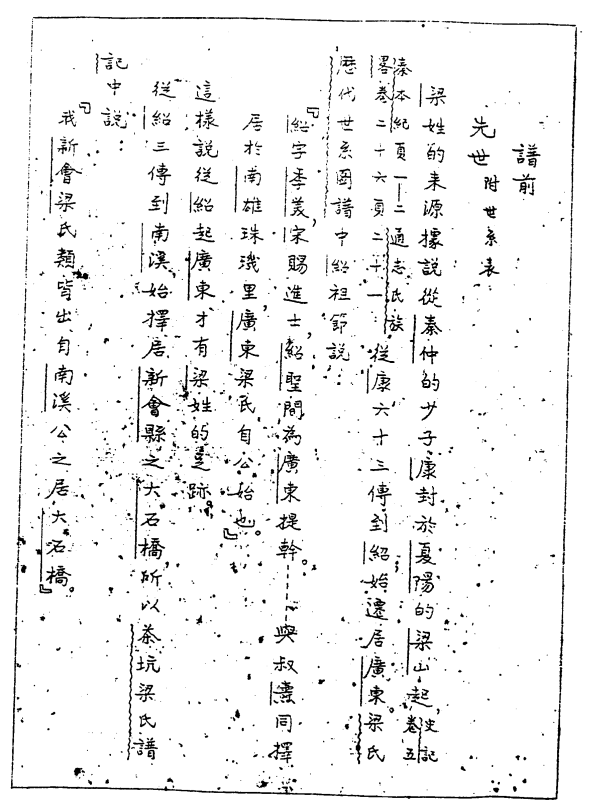 譜前
先世 附世系表
梁姓的來源據說從秦仲的少子康封於夏陽的梁山起,史記卷五
秦本紀頁一—二通志氏族
畧卷二十六頁二十一 從康六十三傳到紹始遷居廣東。梁氏
歷代世系圖譜中紹祖節說:
『紹字季美,宋賜進士,紹聖間為廣東提幹。------與叔燾同擇
居於南雄珠璣里,廣東梁氏自公始也。』
這樣說從紹起廣東才有梁姓的足跡。
從紹三傳到南溪,始擇居新會縣之大石橋,所以茶坑梁氏譜
記中說:
『我新會梁氏類皆出自南溪公之居大石橋。』